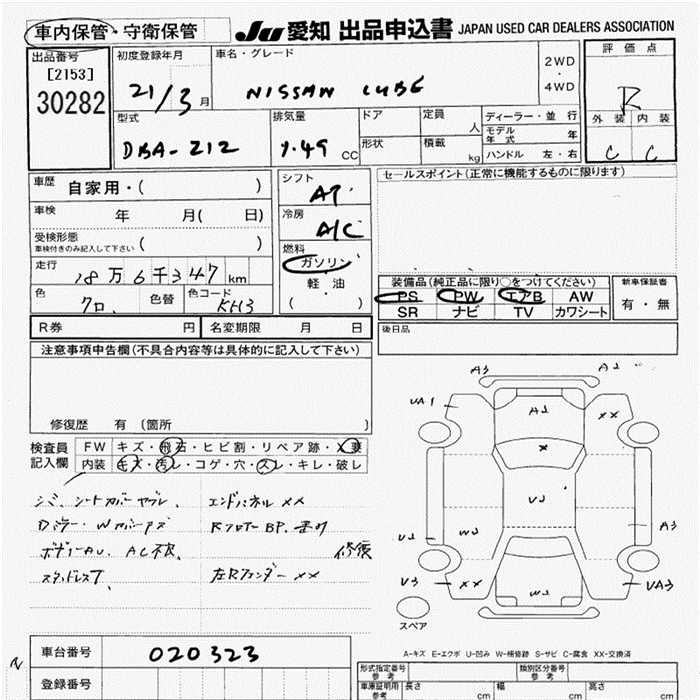 車内保管・守衛保管
JU 愛知 出品申込書 JAPAN USED CAR DEALERS ASSOCIATION
出品番号
[2153]
30282
初度登録年月
21/3月
車名・グレード
NISSAN CUBE
2WD
・
4WD
評価点
R
外装 内装
C C
型式
DBA-Z12
排気量
1.49 CC
ドア
形状
定員
人
積載
kg
ディーラー・並行
モデル年式 年
ハンドル 左・右
車歴 自家用・( )
車検 年 月( 日)
受検形態
車検付きのみ記入して下さい ( )
走行 18万6千347km
色 クロ 色替 色コード KH3
シフト
AT
冷房
A/C
燃料
ガソリン
軽・油
( )
セールスポイント(正常に機能するものに限ります)
装備品(純正品に限り○をつけてください)
PS PW エアB AW
SR ナビ TV カワシート
新車保証書
有・無
後日品
R券 円 名変期限 月 日
注意事項申告欄(不具合内容等は具体的に記入して下さい)
修復歴 有 〔箇所 〕
検査員記入欄
FW キズ・飛石・ヒビ割・リペア跡・X要
内装 キズ・汚レ・コゲ・穴・スレ・キレ・破レ
シミ、シートカバーヤブレ、 エンドパネル XX
Rフロアー BP.
ボディーAU、AC不良、 修復
スタッドレスT 左Rフェンダー XX
A3
A2
UA1
A2
XX
X
U2
W3
U2
A3
V3
XX
W2
UA3
スペア
A-キズ E-エクボ U-凹み W-補修跡 S-サビ C-腐食 XX-交換済
車台番号 020323
登録番号
形式指定番号
参考
類別区分番号
参考
車庫証明用
参考
長さ cm 幅 cm 高さ cm